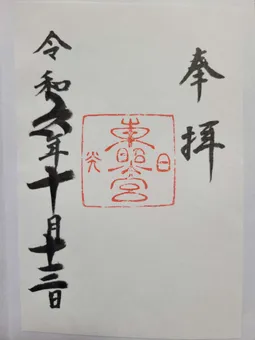 奉拝
日光
東照宮
令和六年十月十三日